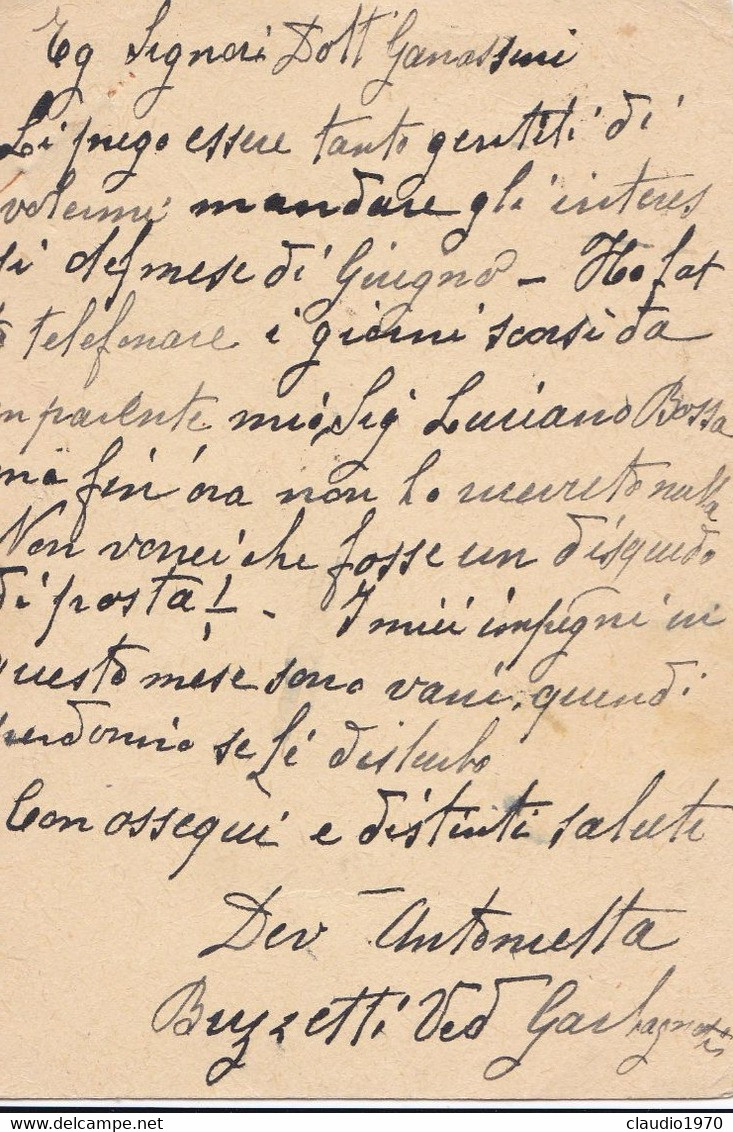 Eg Signori Dott Ganassini
Li prego essere tanto gentili di
volermi mandare gli interes
si del mese di Giugno - Ho fat
to telefonare i giorni scorsi da
un parente mio, Sig Luciano Bossa
ma fin'ora non ho ricevuto nulla
Non vorrei che fosse un disguido
di posta! - I miei impegni in
questo mese sono vari, quindi
perdonio se Li disturbo
Con ossequi e distinti saluti
Dev Antonietta
Buzzetti Ved
claudio1970